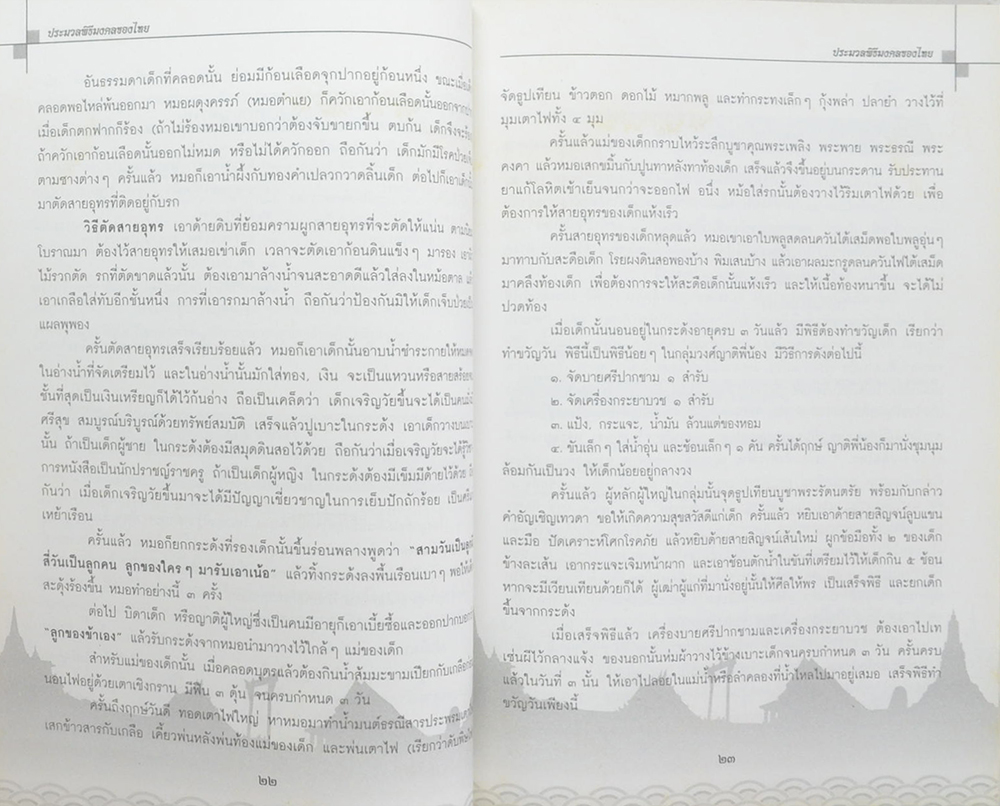 ประมวลพิธีมงคลของไทย
อันธรรมดาเด็กที่คลอดนั้น ย่อมมีก้อนเลือดจุกปากอยู่ก้อนหนึ่ง ขณะเมื่อ
คลอดพอไหล่พ้นออกมา หมอผดุงครรภ์ (หมอตำแย) ก็ควักเอาก้อนเลือดนั้นออกจาก
เมื่อเด็กตกฟากก็ร้อง (ถ้าไม่ร้องหมอเขาบอกว่าต้องจับขายกขึ้น ตบก้น เด็กจึงจะ
ถ้าควักเอาก้อนเลือดนั้นออกไม่หมด หรือไม่ได้ควักออก ถือกันว่า เด็กมักมีโรค
ตามซางต่างๆ ครั้นแล้ว หมอก็เอาน้ำผึ้งกับทองคำเปลวกวาดลิ้นเด็ก ต่อไปก็เอา
มาตัดสายอุทรที่ติดอยู่กับรก
วิธีตัดสายอุทร เอาด้ายดิบที่ย้อมครามผูกสายอุทรที่จะตัดให้แน่น
โบราณมา ต้องไว้สายอุทรให้เสมอเข่าเด็ก เวลาจะตัดเอาก้อนดินแข็งๆ มารอง
ไม้รวกตัด รกที่ตัดขาดแล้วนั้น ต้องเอามาล้างน้ำจนสะอาดดีแล้วใส่ลงในหม้อตาล
เอาเกลือใส่ทับอีกชั้นหนึ่ง การที่เอารกมาล้างน้ำ ถือกันว่าป้องกันมิให้เด็กเจ็บป่วย
แผลพุพอง
ครั้นตัดสายอุทรเสร็จเรียบร้อยแล้ว หมอก็เอาเด็กนั้นอาบน้ำชำระกายให้
ในอ่างน้ำที่จัดเตรียมไว้ และในอ่างน้ำนั้นมักใส่ทอง, เงิน จะเป็นแหวนหรือสายสร้อย
ชั้นที่สุดเป็นเงินเหรียญก็ได้ไว้ก้นอ่าง ถือเป็นเคล็ดว่า เด็กเจริญวัยขึ้นจะได้เป็นคน
ศรีสุข สมบูรณ์บริบูรณ์ด้วยทรัพย์สมบัติ เสร็จแล้วปูเบาะในกระด้ง เอาเด็กวางบน
นั้น ถ้าเป็นเด็กผู้ชาย ในกระด้งต้องมีสมุดดินสอไว้ด้วย ถือกันว่าเมื่อเจริญวัยจะได้รู้
การหนังสือเป็นนักปราชญ์ราชครู ถ้าเป็นเด็กผู้หญิง ในกระด้งต้องมีเข็มมีด้ายไว้ด้วย
กันว่า เมื่อเด็กเจริญวัยขึ้นมาจะได้มีปัญญาเชี่ยวชาญในการเย็บปักถักร้อย เป็น
เหย้าเรือน
ครั้นแล้ว หมอก็ยกกระด้งที่รองเด็กนั้นขึ้นร่อนพลางพูดว่า "สามวันเป็น
สี่วันเป็นลูกคน ลูกของใครๆ มารับเอาเน้อ" แล้วทิ้งกระด้งลงพื้นเรือนเบาๆ พอให้
สะดุ้งร้องขึ้น หมอทำอย่างนี้ ๓ ครั้ง
ต่อไป บิดาเด็ก หรือญาติผู้ใหญ่ซึ่งเป็นคนมีอายุก็เอาเบี้ยซื้อและออกปาก
"ลูกของข้าเอง" แล้วรับกระด้งจากหมอนำมาวางไว้ใกล้ๆ แม่ของเด็ก
สำหรับแม่ของเด็กนั้น เมื่อคลอดบุตรแล้วต้องกินน้ำส้มมะขามเปียกกับเกลือ
นอนไฟอยู่ด้วยเตาเชิงกราน มีฟืน ๓ ดุ้น จนครบกำหนด ๓ วัน
ครั้นถึงฤกษ์วันดี ทอดเตาไฟใหญ่ หาหมอมาทำน้ำมนต์ธรณีสาร
เสกข้าวสารกับเกลือ เคี้ยวพ่นหลังพ่นท้องแม่ของเด็ก และพ่นเตาไฟ (เรียกว่าดับพิษ
๒๒
ประมวลพิธีมงคลของไทย
จัดธูปเทียน ข้าวตอก ดอกไม้ หมากพลู และทำกระทงเล็กๆ กุ้งพล่า ปลายำ วางไว้ที่
มุมเตาไฟทั้ง ๔ มุม
ครั้นแล้วแม่ของเด็กกราบไหว้ระลึกบูชาคุณพระเพลิง พระพาย พระธรณี พระ
คงคา แล้วหมอเสกขมิ้นกับปูนทาหลังทาท้องเด็ก เสร็จแล้วจึงขึ้นอยู่บนกระดาน รับประทาน
ยาแก้โลหิตเช้าเย็นจนกว่าจะออกไฟ อนึ่ง หม้อใส่รกนั้นต้องวางไว้ริมเตาไฟด้วย เพื่อ
ต้องการให้สายอุทรของเด็กแห้งเร็ว
ครั้นสายอุทรของเด็กหลุดแล้ว หมอเขาเอาใบพลูสดลนควันใต้เสม็ดพอใบพลูอุ่นๆ
มาทาบกับสะดือเด็ก โรยผงดินสอพองบ้าง พิมเสนบ้าง แล้วเอาผลมะกรูดลนควันไฟใต้เสม็ด
มาคลึงท้องเด็ก เพื่อต้องการจะให้สะดือเด็กนั้นแห้งเร็ว และให้เนื้อท้องหนาขึ้น จะได้ไม่
ปวดท้อง
เมื่อเด็กนั้นนอนอยู่ในกระด้งอายุครบ ๓ วันแล้ว มีพิธีต้องทำขวัญเด็ก เรียกว่า
ทำขวัญวัน พิธีนี้เป็นพิธีน้อยๆ ในกลุ่มวงศ์ญาติพี่น้อง มีวิธีการดังต่อไปนี้
๑. จัดบายศรีปากชาม ๑ สำรับ
๒. จัดเครื่องกระยาบวช ๑ สำรับ
๓. แป้ง, กระแจะ, น้ำมัน ล้วนแต่ของหอม
๔. ขันเล็กๆ ใส่น้ำอุ่น และช้อนเล็กๆ ๑ คัน ครั้นได้ฤกษ์ ญาติพี่น้องก็มานั่งชุมนุม
ล้อมกันเป็นวง ให้เด็กน้อยอยู่กลางวง
ครั้นแล้ว ผู้หลักผู้ใหญ่ในกลุ่มนั้นจุดธูปเทียนบูชาพระรัตนตรัย พร้อมกับกล่าว
คำอัญเชิญเทวดา ขอให้เกิดความสุขสวัสดีแก่เด็ก ครั้นแล้ว หยิบเอาด้ายสายสิญจน์ลูบแขน
และมือ ปัดเคราะห์โศกโรคภัย แล้วหยิบด้ายสายสิญจน์เส้นใหม่ ผูกข้อมือทั้ง ๒ ของเด็ก
ข้างละเส้น เอากระแจะเจิมหน้าผาก และเอาช้อนตักน้ำในขันที่เตรียมไว้ให้เด็กกิน ๕ ช้อน
หากจะมีเวียนเทียนด้วยก็ได้ ผู้เฒ่าผู้แก่ที่มานั่งอยู่นั้นให้ศีลให้พร เป็นเสร็จพิธี และยกเด็ก
ขึ้นจากกระด้ง
เมื่อเสร็จพิธีแล้ว เครื่องบายศรีปากชามและเครื่องกระยาบวช ต้องเอาไปเท
เซ่นผีไว้กลางแจ้ง ของนอกนั้นห่มผ้าวางไว้ข้างเบาะเด็กจนครบกำหนด ๓ วัน ครั้นครบ
แล้วในวันที่ ๓ นั้น ให้เอาไปลอยในแม่น้ำหรือลำคลองที่น้ำไหลไปมาอยู่เสมอ เสร็จพิธีทำ
ขวัญวันเพียงนี้
๒๓